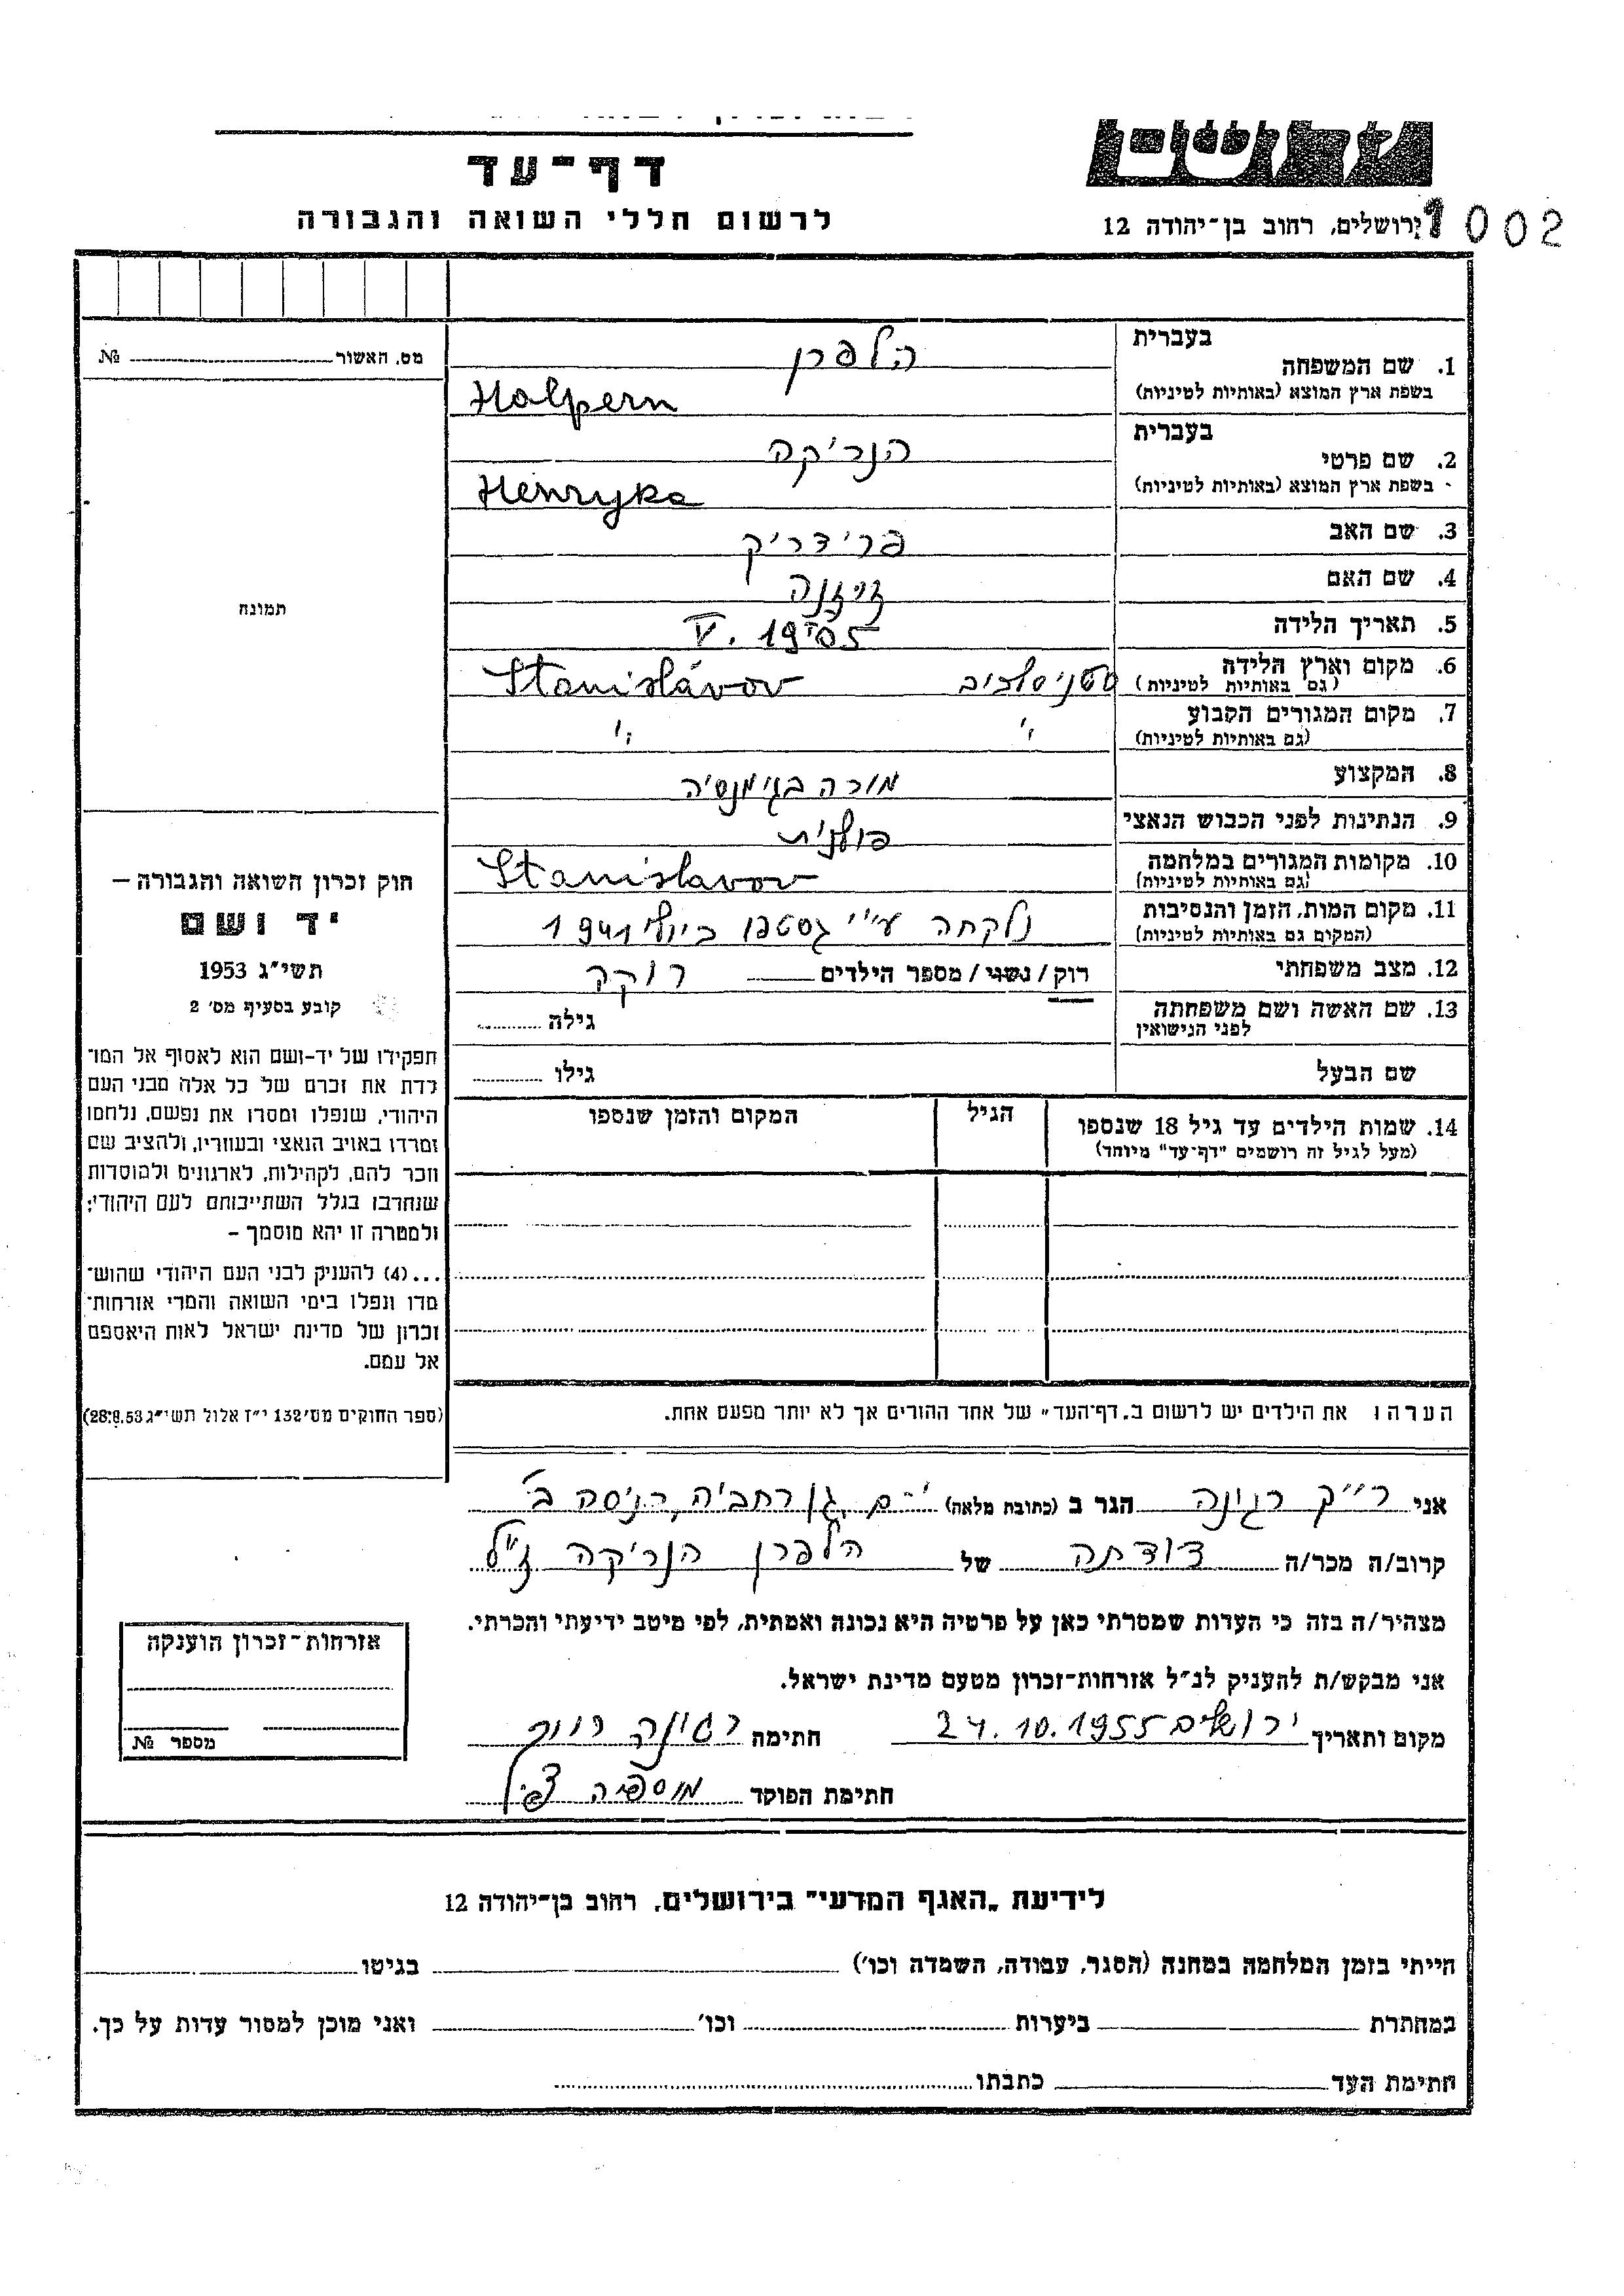 דף-עד
לרשום חללי השואה והגבורה
ירושלים, רחוב בן-יהודה 12
1002
בעברית
הלפרן
1. שם המשפחה
בשפת ארץ המוצא (באותיות לטיניות)
Halpern
בעברית
הנריקה
2. שם פרטי
בשפת ארץ המוצא (באותיות לטיניות)
Henryka
3. שם האב פרידריק
4. שם האם
5. תאריך הלידה V. 1905
6. מקום וארץ הלידה
(גם באותיות לטיניות) סטניסלביב Stanislávov
7. מקום המגורים הקבוע
(גם באותיות לטיניות) " "
8. המקצוע מורה בגימנסיה
9. הנתינות לפני הכבוש הנאצי פולנית
10. מקומות המגורים במלחמה
(גם באותיות לטיניות) Stanislavov
11. מקום המות, הזמן והנסיבות
(המקום גם באותיות לטיניות) נלקחה ע"י גסטפו ביולי 1941
12. מצב משפחתי רוק / נשוי / מספר הילדים רוקה
13. שם האשה ושם משפחתה
לפני הנישואין
גילה
שם הבעל גילו
14. שמות הילדים עד גיל 18 שנספו
(מעל לגיל זה רושמים "דף-עד" מיוחד)
הגיל
המקום והזמן שנספו
הערה: את הילדים יש לרשום ב„דף-העד" של אחד ההורים אך לא יותר מפעם אחת.
מס. האשור №
תמונה
חוק זכרון השואה והגבורה –
יד ושם
תשי"ג 1953
קובע בסעיף מס' 2
תפקידו של יד-ושם הוא לאסוף אל המו־
לדת את זכרם של כל אלה מבני העם
היהודי, שנפלו ומסרו את נפשם, נלחמו
ומרדו באויב הנאצי ובעוזריו, ולהציב שם
וזכר להם, לקהילות, לארגונים ולמוסדות
שנחרבו בגלל השתייכותם לעם היהודי;
ולמטרה זו יהא מוסמך –
...(4) להעניק לבני העם היהודי שהוש־
מדו ונפלו בימי השואה והמרי אזרחות־
זכרון של מדינת ישראל לאות היאספם
אל עמם.
(ספר החוקים מס' 132 י"ז אלול תשי"ג 28.8.53)
אני רגינה הגר ב (כתובת מלאה) י-ם, גן רחביה, כניסה ב'
קרוב/ה מכר/ה דודתה של הלפרן הנריקה ז"ל
מצהיר/ה בזה כי העדות שמסרתי כאן על פרטיה היא נכונה ואמתית, לפי מיטב ידיעתי והכרתי.
אני מבקש/ת להעניק לנ"ל אזרחות-זכרון מטעם מדינת ישראל.
מקום ותאריך ירושלים 24.10.1955 חתימה רגינה
חתימת הפוקד
אזרחות-זכרון הוענקה
מספר №
לידיעת „האגף המדעי" בירושלים, רחוב בן-יהודה 12
הייתי בזמן המלחמה במחנה (הסגר, עבודה, השמדה וכו') בגיטו
במחתרת ביערות וכו' ואני מוכן למסור עדות על כך.
חתימת העד כתבתו